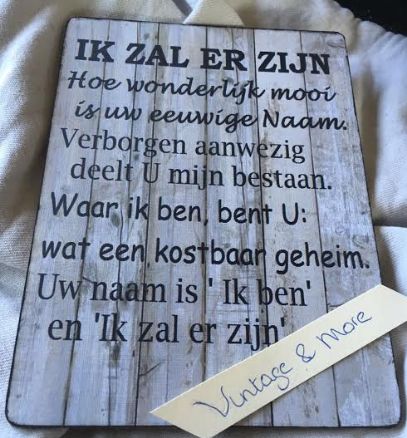 IK ZAL ER ZIJN
Hoe wonderlijk mooi
is uw eeuwige Naam.
Verborgen aanwezig
deelt U mijn bestaan.
Waar ik ben, bent U:
wat een kostbaar geheim.
Uw naam is ' Ik ben'
en 'Ik zal er zijn'
Vintage & More